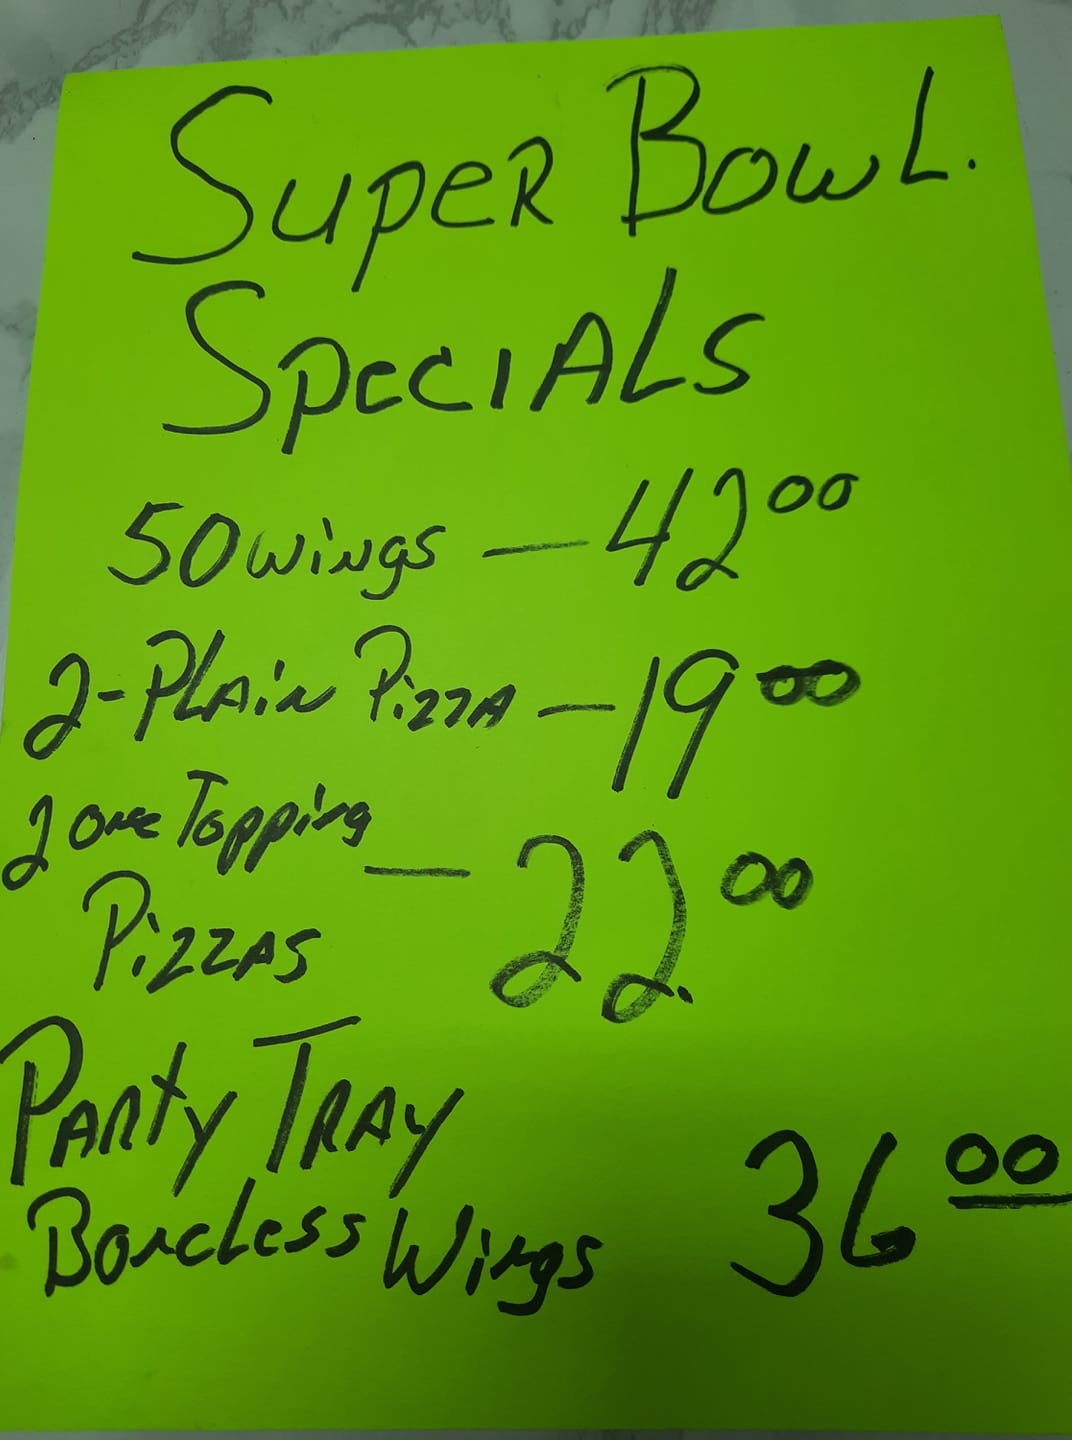 Super Bowl.
Specials
50 wings — 42 00
2-Plain Pizza — 19 00
2 One Topping
Pizzas — 22.00
Party Tray
Boneless Wings 36 00